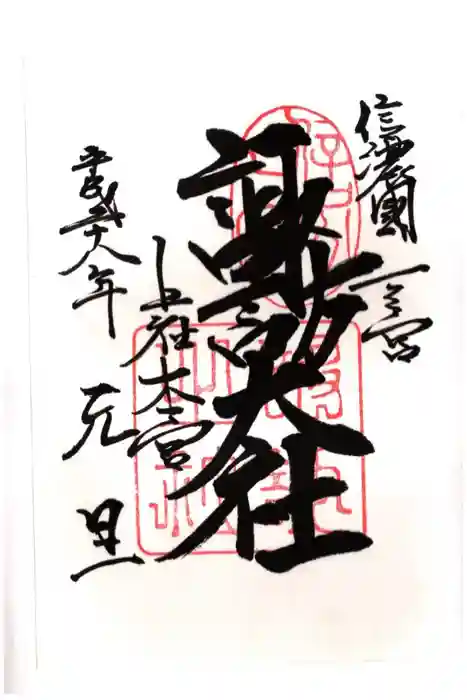 信濃國一之宮
諏訪大社
上社本宮
平成弐十八年元旦